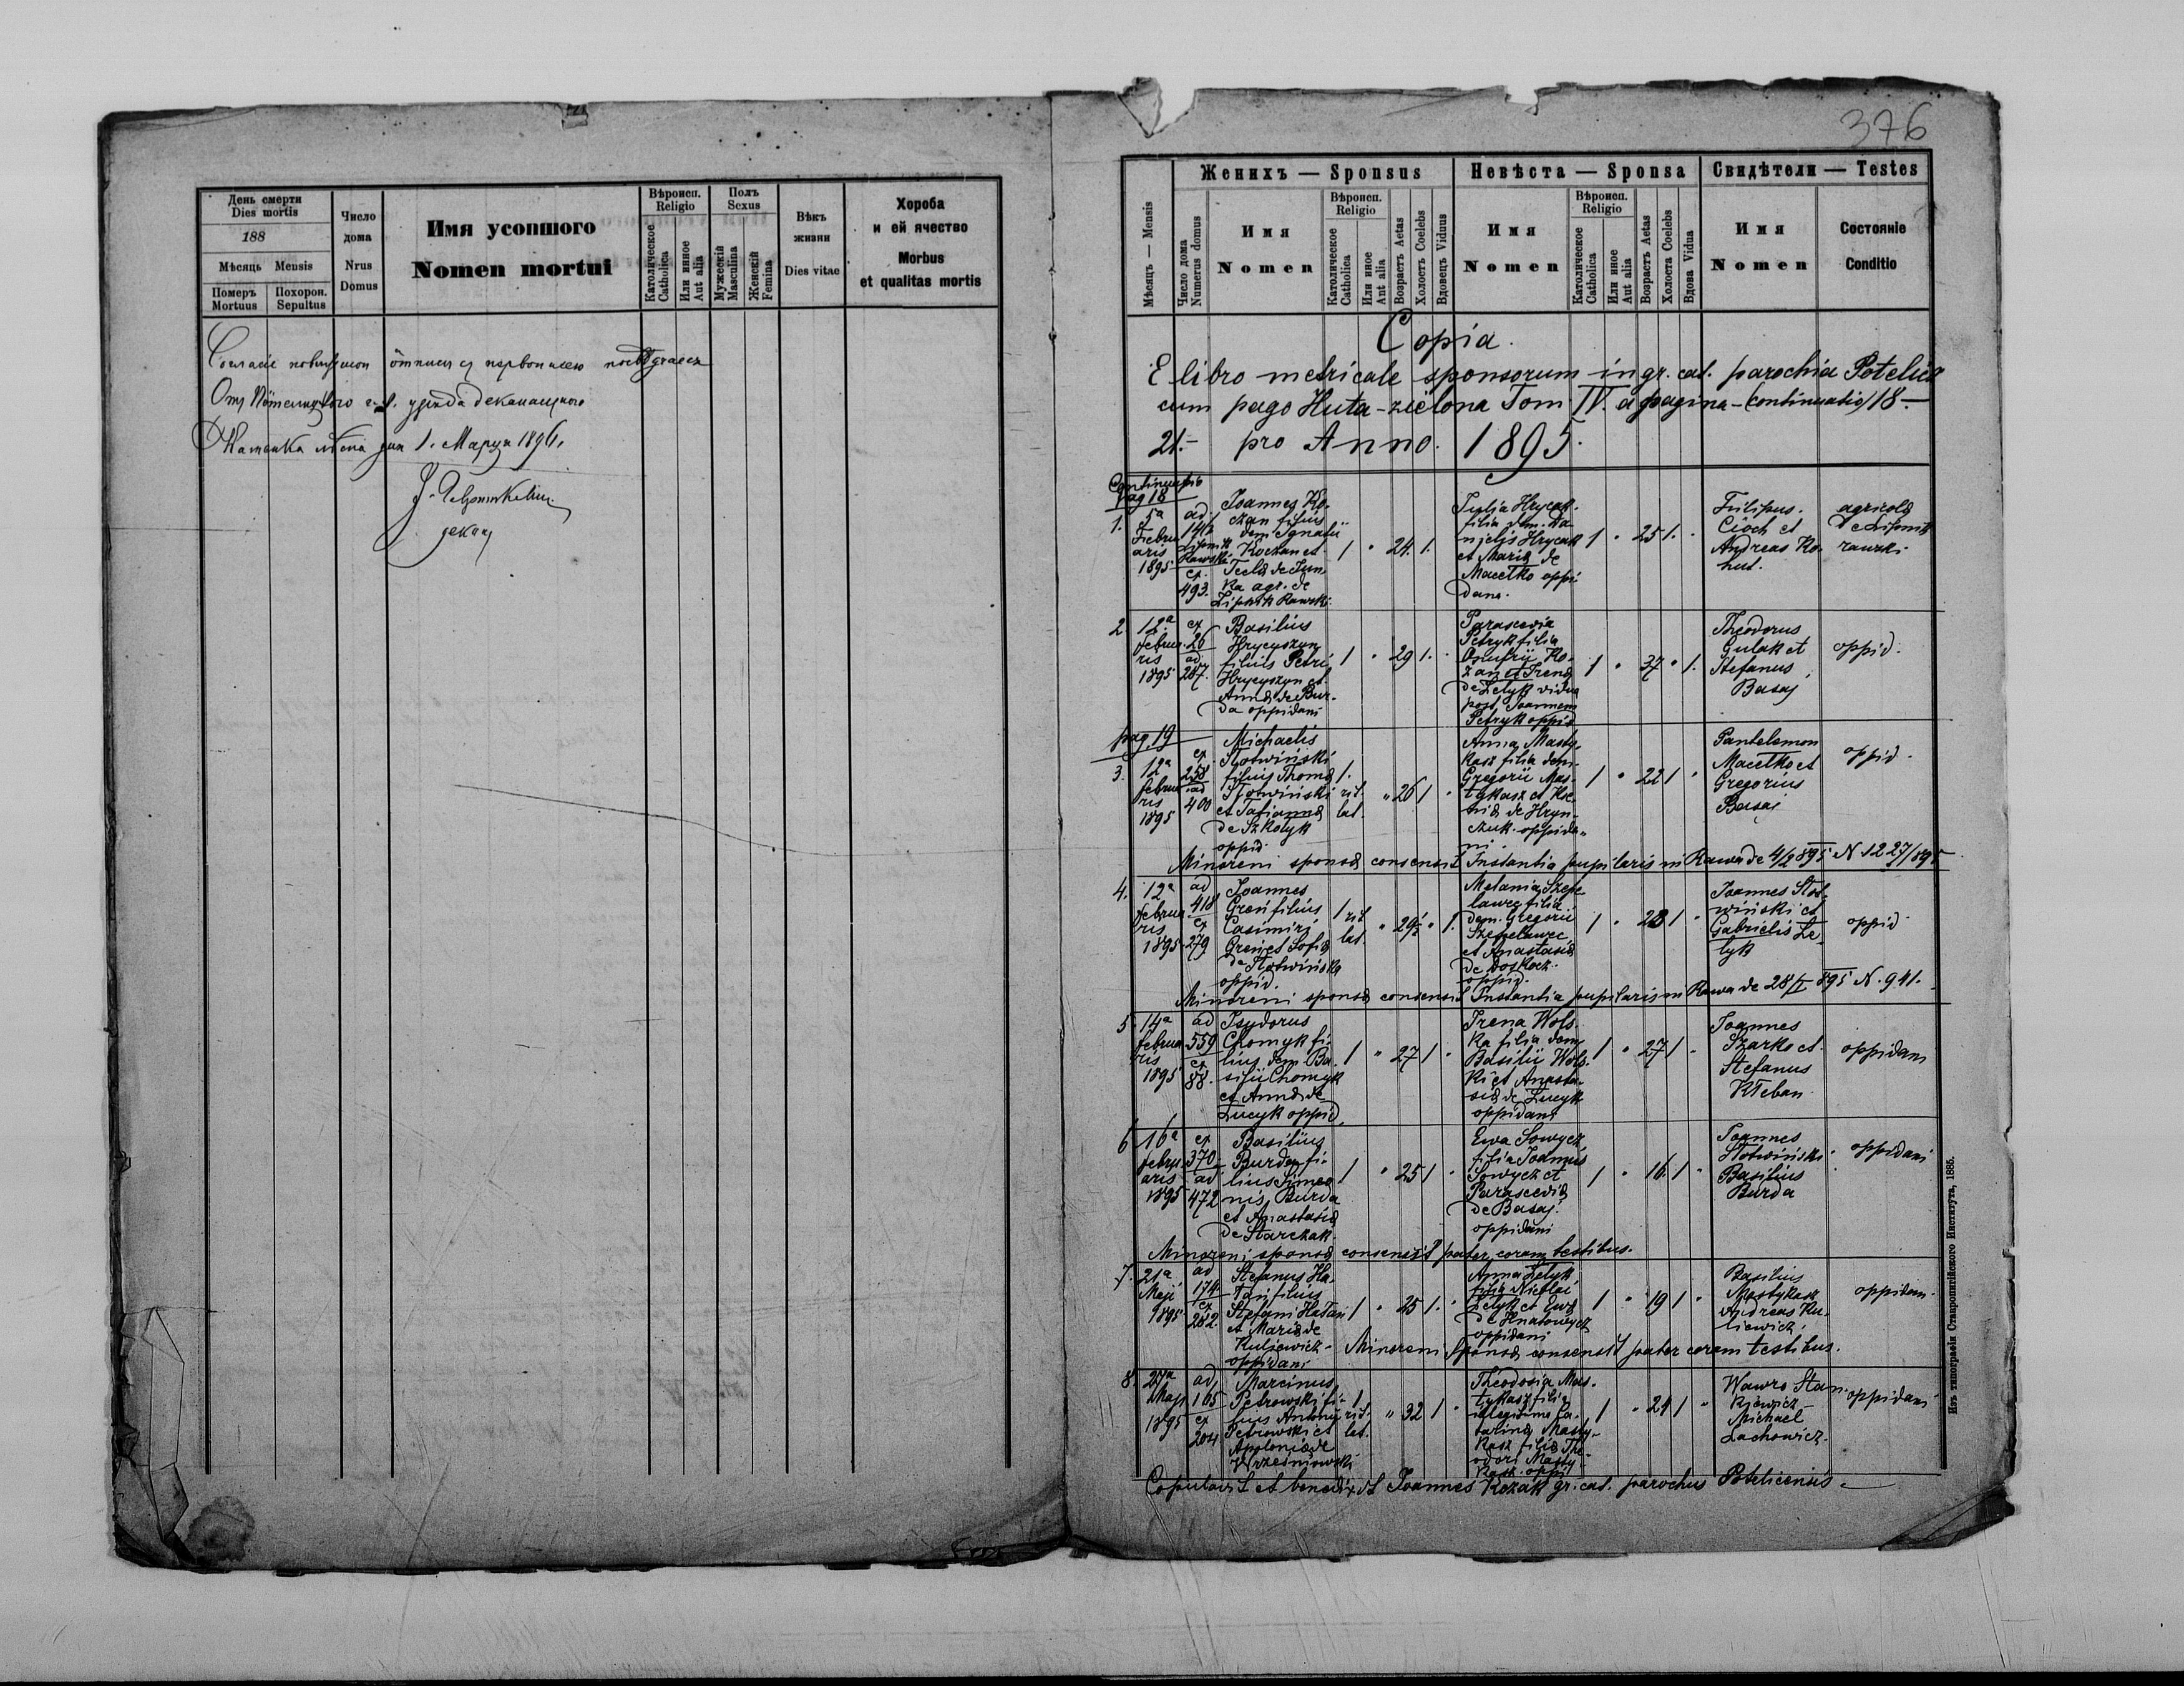 День смерти
Dies mortis
188
Мѣсяць Mensis
Померъ
Mortuus
Похорон.
Sepultus
Число
дома
Nrus
Domus
Имя усопшого
Nomen mortui
Вѣроисп.
Religio
Католическое
Catholica
Или инное
Aut alia
Полъ
Sexus
Мужескій
Masculina
Женскій
Femina
Вѣкъ
жизни
Dies vitae
Хороба
и ей ячество
Morbus
et qualitas mortis
1. Марця 1896.
декан
376
Мѣсяцъ — Mensis
Женихъ — Sponsus
Число дома
Numerus domus
Имя
Nomen
Вѣроисп.
Religio
Католическое
Catholica
Или иное
Aut alia
Возрастъ Aetas
Холостъ Coelebs
Вдовецъ Viduus
Невѣста — Sponsa
Имя
Nomen
Вѣроисп.
Religio
Католическое
Catholica
Или иное
Aut alia
Возрастъ Aetas
Холоста Coelebs
Вдова Vidua
Свидѣтели — Testes
Имя
Nomen
Состояніе
Conditio
Copia.
E libro metricale sponsorum in gr. cat. parochia Potelicz
cum pago Huta-zielona Tom IV. a pagina (continuatio) 18.-
21.- pro Anno. 1895.
Continuatio
pag 18
1.
5a
Febru
aris
1895
ad.
142
Lipnik
Rawski
ex.
493.
Joannes Ko-
czan filius
dem. Ignatii
Koczan et
Teclae de Jun
ka agr. de
Lipnik Rawski.
1 " 24. 1.
Julia Hrycak
filia dem. Da
nielis Hrycak
et Mariae de
Macełko oppi
dana.
1 " 25 1.
Filipus.
Cioch et
Andreas Ko-
hut.
agricolae
de Lipnik
rawski.
2
12a
februa
ris
1895
ex
26
ad
287.
Basilius
Hrycyszyn
filius Petri
Hrycyszyn et
Annae de Bur-
da oppidani
1 " 29 1.
Parascevia
Petryk filia
Onufrii Ko-
zan et Irenae
de Zelyk vidua
post. Joannem
Petryk oppid
1 " 37 " 1.
Theodorus
Gulak et
Stefanus
Basaj
oppid.
pag. 19
3.
12a
februa
ris
1895
ex
258
ad
400
Michaelis
Słotwiński
filius Thomae
Słotwiński
et Tatiannae
de Szkolyk
oppid.
1.
rit.
lat.
" 26 1
Anna Masty-
kasz filia dem
Gregorii Mas-
tykasz et Xe-
niae de Hryn-
czuk. oppida-
ni.
1 " 22 1
Pantelemon
Macełko et
Gregorius
Basaj
oppid.
Minoreni sponsae consensit Instantia pupilaris in Rawa de 4/2 895 N 1227/895
4.
12a
februa
ris
1895
ad
418
ex
279
Joannes
Greń filius
Casimiri
Greń et Sofiae
de Słotwińska
oppid.
1 rit
lat.
" 29 1/2 " 1.
Melania Szepe
lawec filia
dem. Gregorii
Szepelawec
et Anastasiae
de Doskocz.
oppid.
1 " 23 1
Joannes Słot-
wiński et
Gabrielis Ze-
lyk
oppid
Minoreni sponsae consensit Instantia pupilaris in Rawa de 28/I 895 N. 941.
5
14a
februa
ris
1895
ad
559
ex
88.
Isydorus
Chomyk fi-
lius dem Ba-
silii Chomyk
et Annae de
Łucyk oppid.
1 " 27 1
Irena Wols-
ka filia dem
Basilii Wols-
ki et Anasta-
siae de Łucyk
oppidanae
1 " 27 1
Joannes
Szarko et
Stefanus
Kłeban
oppidani
6
16a
febru
aris
1895
ex
370
ad
472
Basilius
Burda fi-
lius Simeo
nis, Burda
et Anastasiae
de Starczak.
1 " 25 1
Ewa Sowycz
filia Joannis
Sowycz et
Parasceviae
de Basaj.
oppidani
1 " 16. 1
Joannes
Słotwiński
Basilius
Burda
oppidani
Minoreni sponsae consensit pater, coram testibus.
7.
21a
Maji
1895
ad
174
ex
282.
Stefanus Ha-
łań filius
Stefani Hałań
et Mariae de
Kuljewicz-
oppidani
1 " 25 1.
Anna Zelyk
filia Nicolai
Zelyk et Ewae
de Hnatowycz
oppidani
1 " 19 1
Basilius
Mastykasz
Andreas Ku-
liewicz.
oppidani.
Minoreni Sponsae consensit pater coram testibus.
8.
27a
Maji
1895
ad
165
ex
204
Marcinus
Petrowski fi-
lius Antonii
Petrowski et
Apoloniae de
Wrześniowski
1
rit.
lat.
" 32 1
Theodosia Mas-
tykasz filia
illegitima Ca-
tarinae Masty-
kasz filiae The-
odori Masty-
kasz. oppi
1 " 24 1
Wawro Stan-
kiewicz-
Michael
Lachowicz.
oppidani
Copulavit et benedixit Joannes Kozak gr. cat. parochus Potelicensis
Изъ типографіи Ставропигійского Института, 1885.